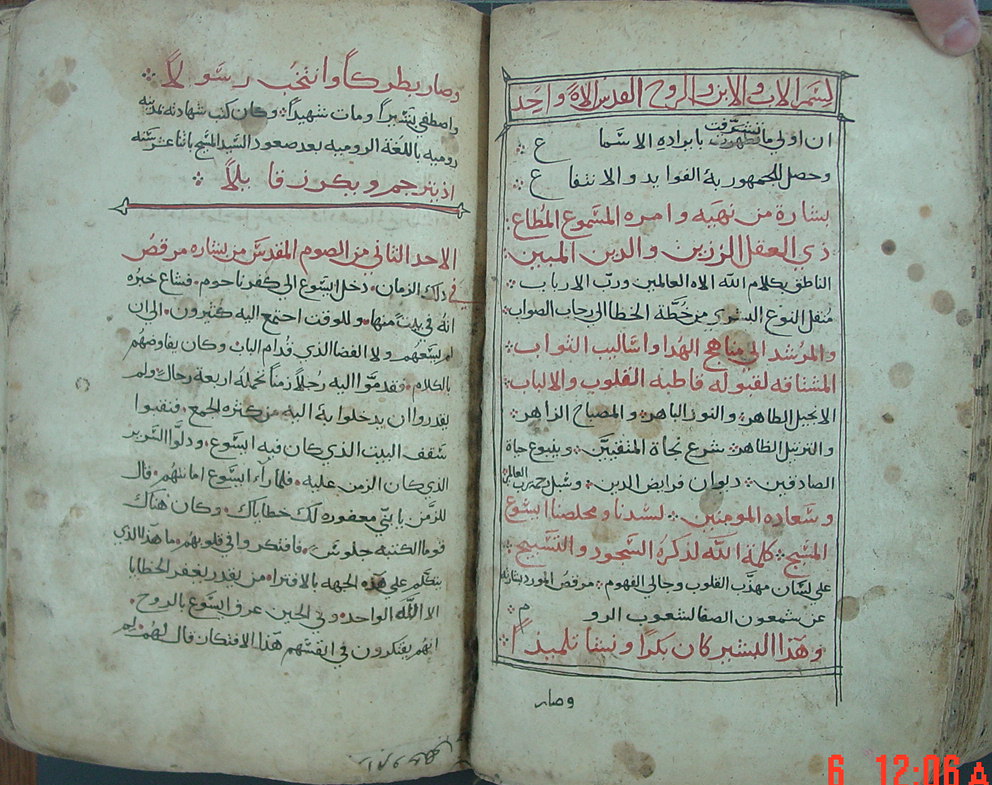 بسم الاب والابن والروح القدس الاه واحد
ان اولي ما تشرفت بايراده الاسماع
وحصل للجمهور به الفوايد والانتفاع
بشارة من نهيه وامره المسموع المطاع
ذي العقل الرزين والدين المبين
الناطق بكلام الله الاه العالمين ورب الارباب
منقل النوع البشري من خطة الخطا الى رحاب الصواب
والمرشد الى مناهج الهدا واساليب الثواب
المشتاقه لقبوله قاطبة القلوب والالباب
الانجيل الطاهر والنور الباهر والمصباح الزاهر
والترتيل الظاهر شرع نجاة المتقين وينبوع حياة
الصادقين ديوان فرايض الدين وسبل حب رب العالمين
وسعادة المومنين لسيدنا ومخلصنا ايسوع
المسيح كلمة الله لذكره السجود والتسبيح
على لسان مهذب القلوب وجالي الفهوم مرقص المورد بشارته
عن شمعون الصفا لشعوب الروم
وهذا البشير كان بكرا ونسيبا تلميذا
وصار
وصار بطركا وانتخب رسولا
واصطفى بشيرا ومات شهيدا وكان كتب شهادته بمدينة
رومية باللغة الرومية بعد صعود السيد المسيح باثنا عشر سنة
اذ يترجم ويكرز قايلا
الاحد الثاني من الصوم المقدس من بشاره مرقص
في ذلك الزمان دخل ايسوع الى كفرناحوم فشاع خبره
انه في بيت منها وللوقت اجتمع اليه كثيرون الى ان
لم يسعهم ولا الفضا الذي قدام الباب وكان يفاوضهم
بالكلام فقدموا اليه رجلا زمنا تحمله اربعة رجال ولم
يقدروا ان يدخلوا به اليه من كثرة الجمع فنقبوا
سقف البيت الذي كان فيه ايسوع ودلوا السرير
الذي كان الزمن عليه فلما راء ايسوع امانتهم قال
للزمن يا بني مغفوره لك خطاياك وكان هناك
قوما الكتبه جلوس فافتكروا في قلوبهم ما هذا الذي
يتكلم على هذه الجهه بالافترا من يقدر يغفر الخطايا
الا الله الواحد وفي الحين عرف ايسوع بالروح
انهم يفتكرون في انفسهم هذا الافتكار قال لهم لم